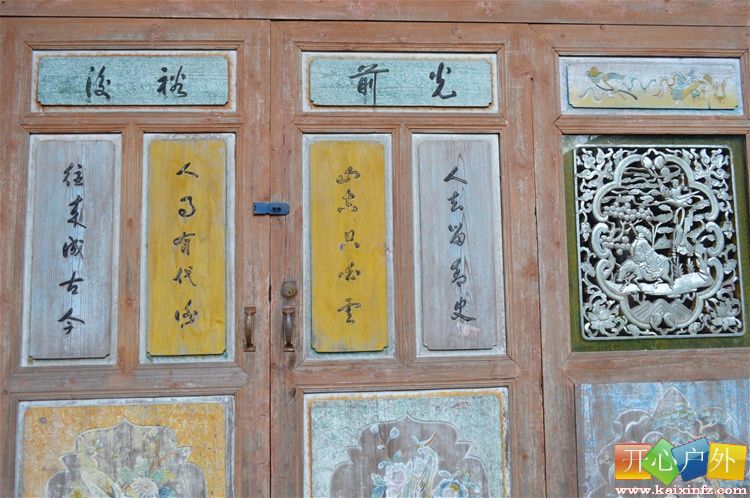 光前
裕後
人去留史
山空只雲
人事有代謝
往來成古今
开心户外
www.kaixinfz.com